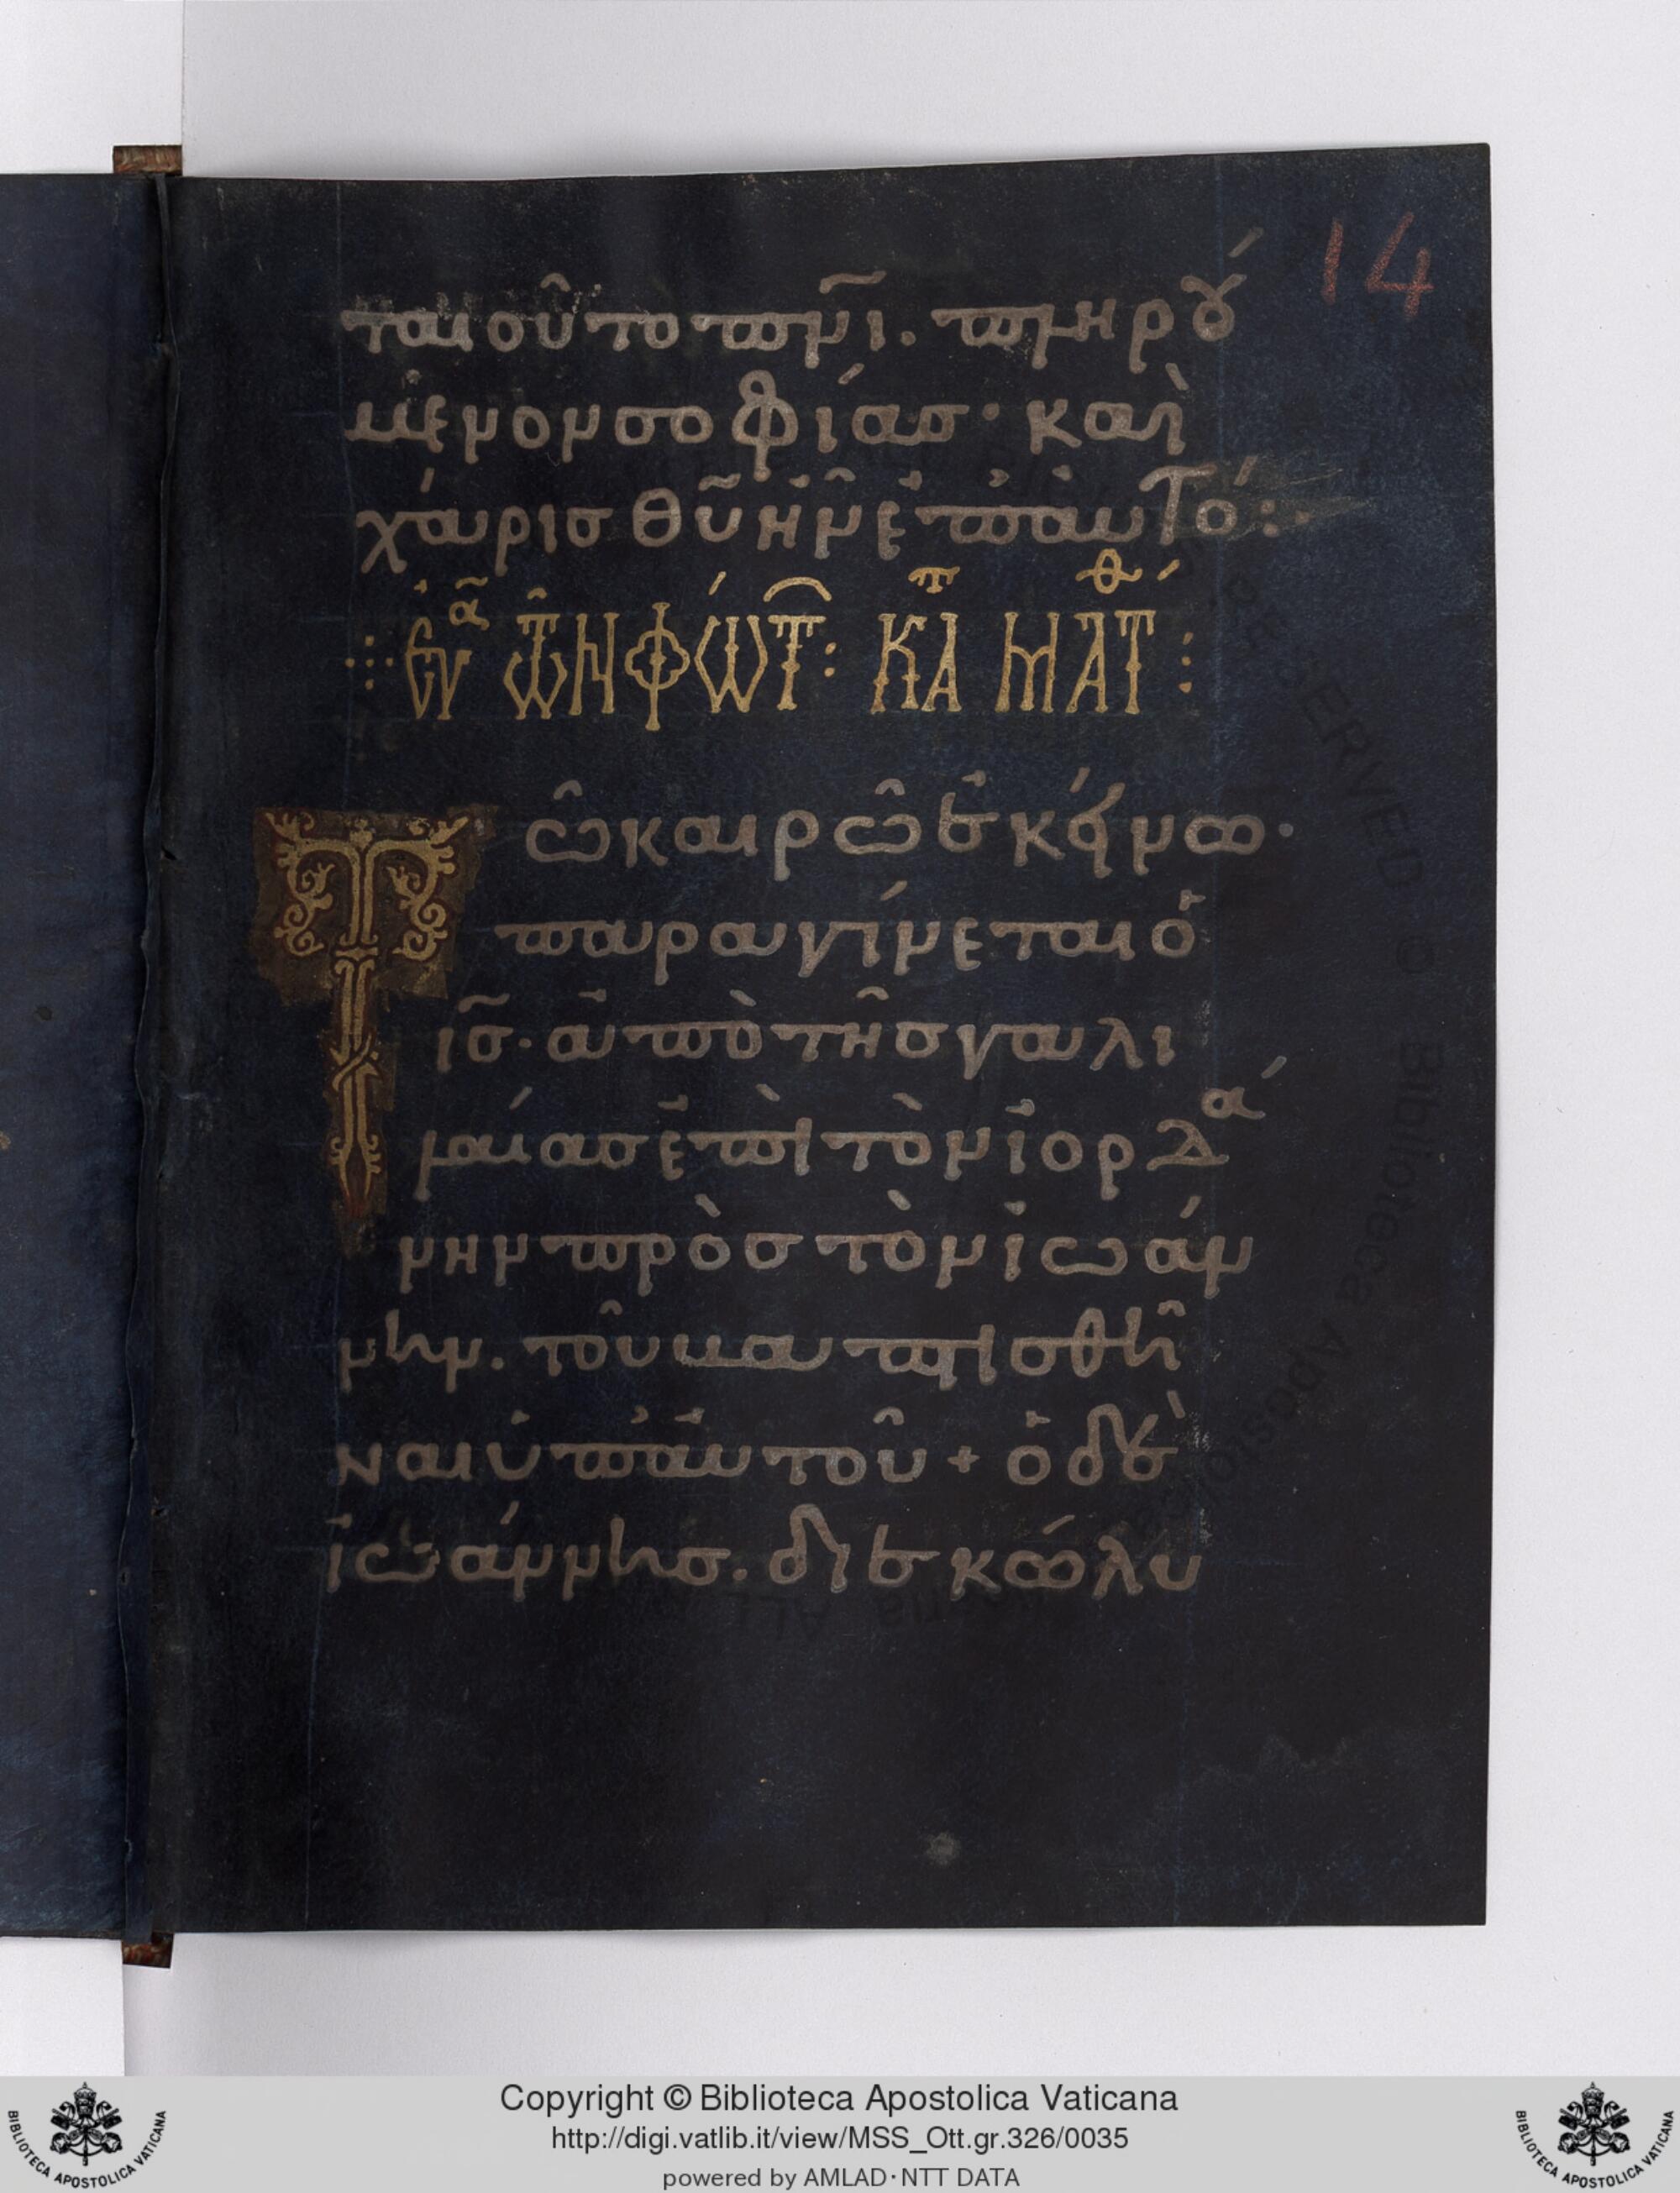 14
ταιοῦτο πνι̅. πληρού
μενον σοφίασ· καὶ
χάρισ θυ̅ ἦν ἐπ' αὐτό:
ἐυα τῶν φώτ: κατ ματθ:
Τῶ καιρῶ ἐκείνω·
παραγίνεται ὁ
ισ̅· ἀπὸ τῆσ γαλι
λαίασ ἐπὶ τὸν ἰορδά
νην πρὸσ τὸν ἰωάν
νην. τοῦ βαπτισθῆ
ναι ὑπ' αὐτοῦ + ὁ δὲ
ἰωάννησ. διεκώλυ
Copyright © Biblioteca Apostolica Vaticana
http://digi.vatlib.it/view/MSS_Ott.gr.326/0035
powered by AMLAD·NTT DATA
BIBLIOTECA APOSTOLICA VATICANA
BIBLIOTECA APOSTOLICA VATICANA